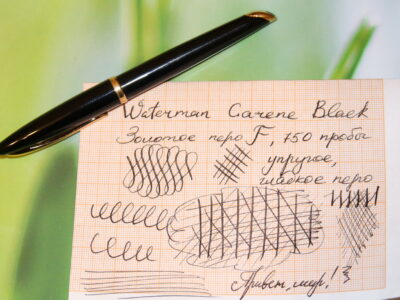 Waterman Carene Black
Золотое перо F, 750 пробы
упругое,
гладкое перо
Привет, мир!